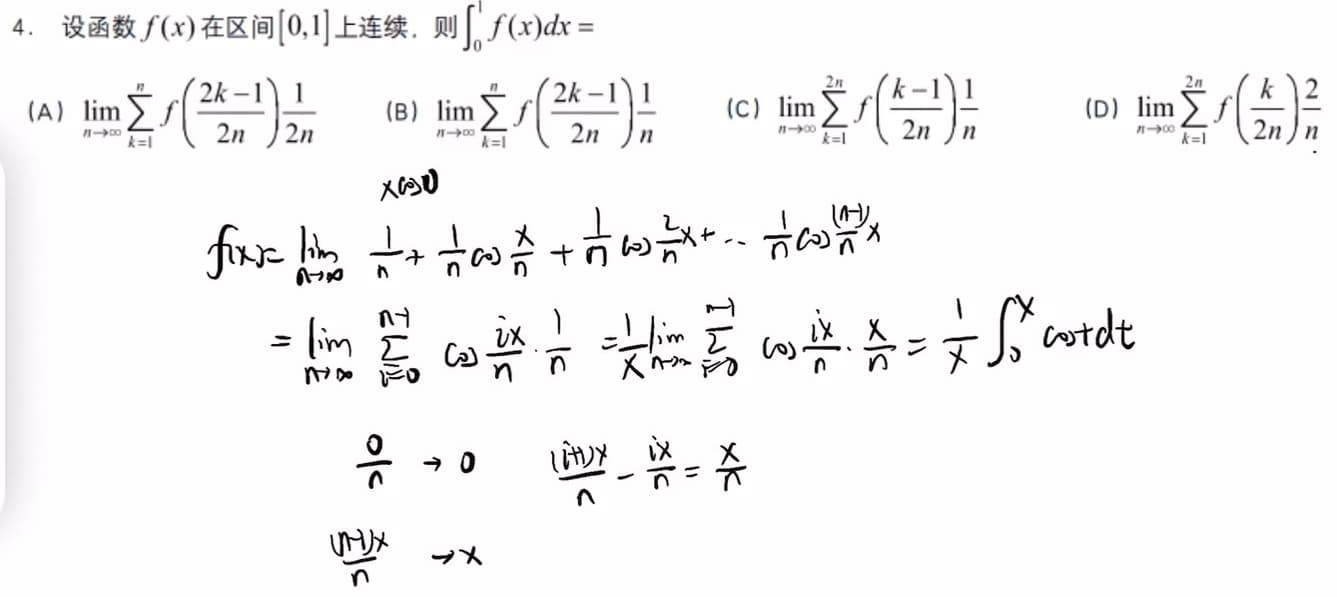 4. 设函数 f(x) 在区间[0,1]上连续，则∫₀¹ f(x)dx =
(A) lim_{n→∞} ∑_{k=1}^{n} f((2k−1)/(2n)) 1/(2n) (B) lim_{n→∞} ∑_{k=1}^{n} f((2k−1)/(2n)) 1/n (C) lim_{n→∞} ∑_{k=1}^{2n} f((k−1)/(2n)) 1/n (D) lim_{n→∞} ∑_{k=1}^{2n} f(k/(2n)) 2/n
xcos0
f(x)= lim_{n→∞} 1/n + 1/n cos x/n + 1/n cos 2/n x + ·· 1/n cos (n-1)/n x
= lim_{n→∞} ∑_{i=0}^{n-1} cos ix/n · 1/n = 1/x lim_{n→∞} ∑_{i=0}^{n-1} cos ix/n · x/n = 1/x ∫₀ˣ costdt
0/n → 0 (i+1)x/n − ix/n = x/n
(n-1)x/n → x